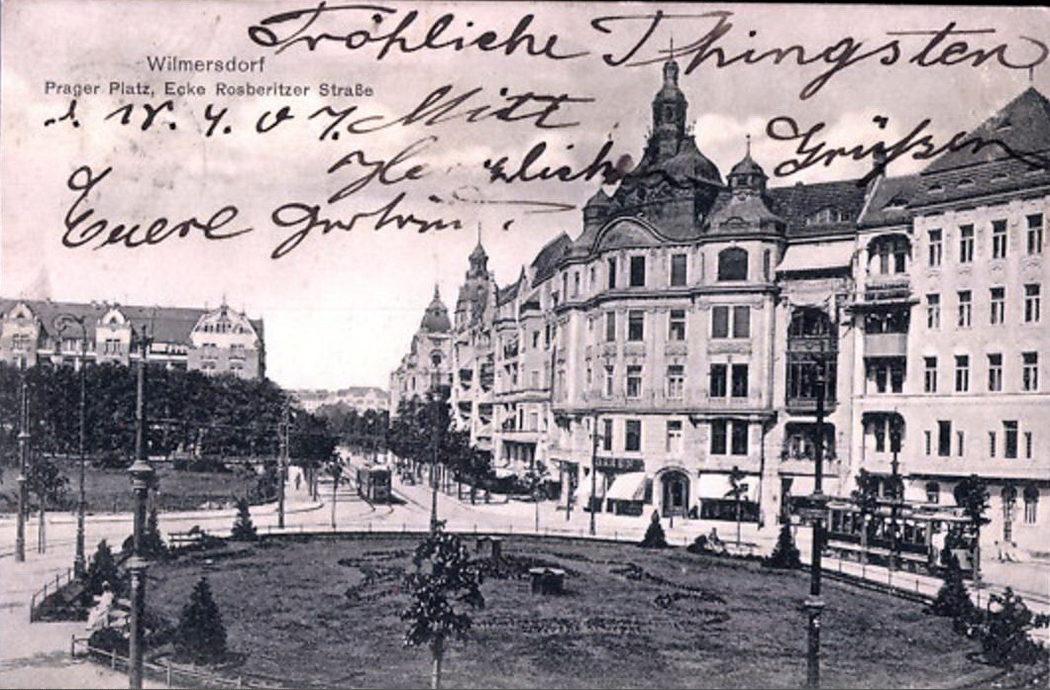 Fröhliche Phingsten
Wilmersdorf
Prager Platz, Ecke Rosberitzer Straße
d. 18. 4. 07. Mitt
Herzlichen Grüßen
Euere